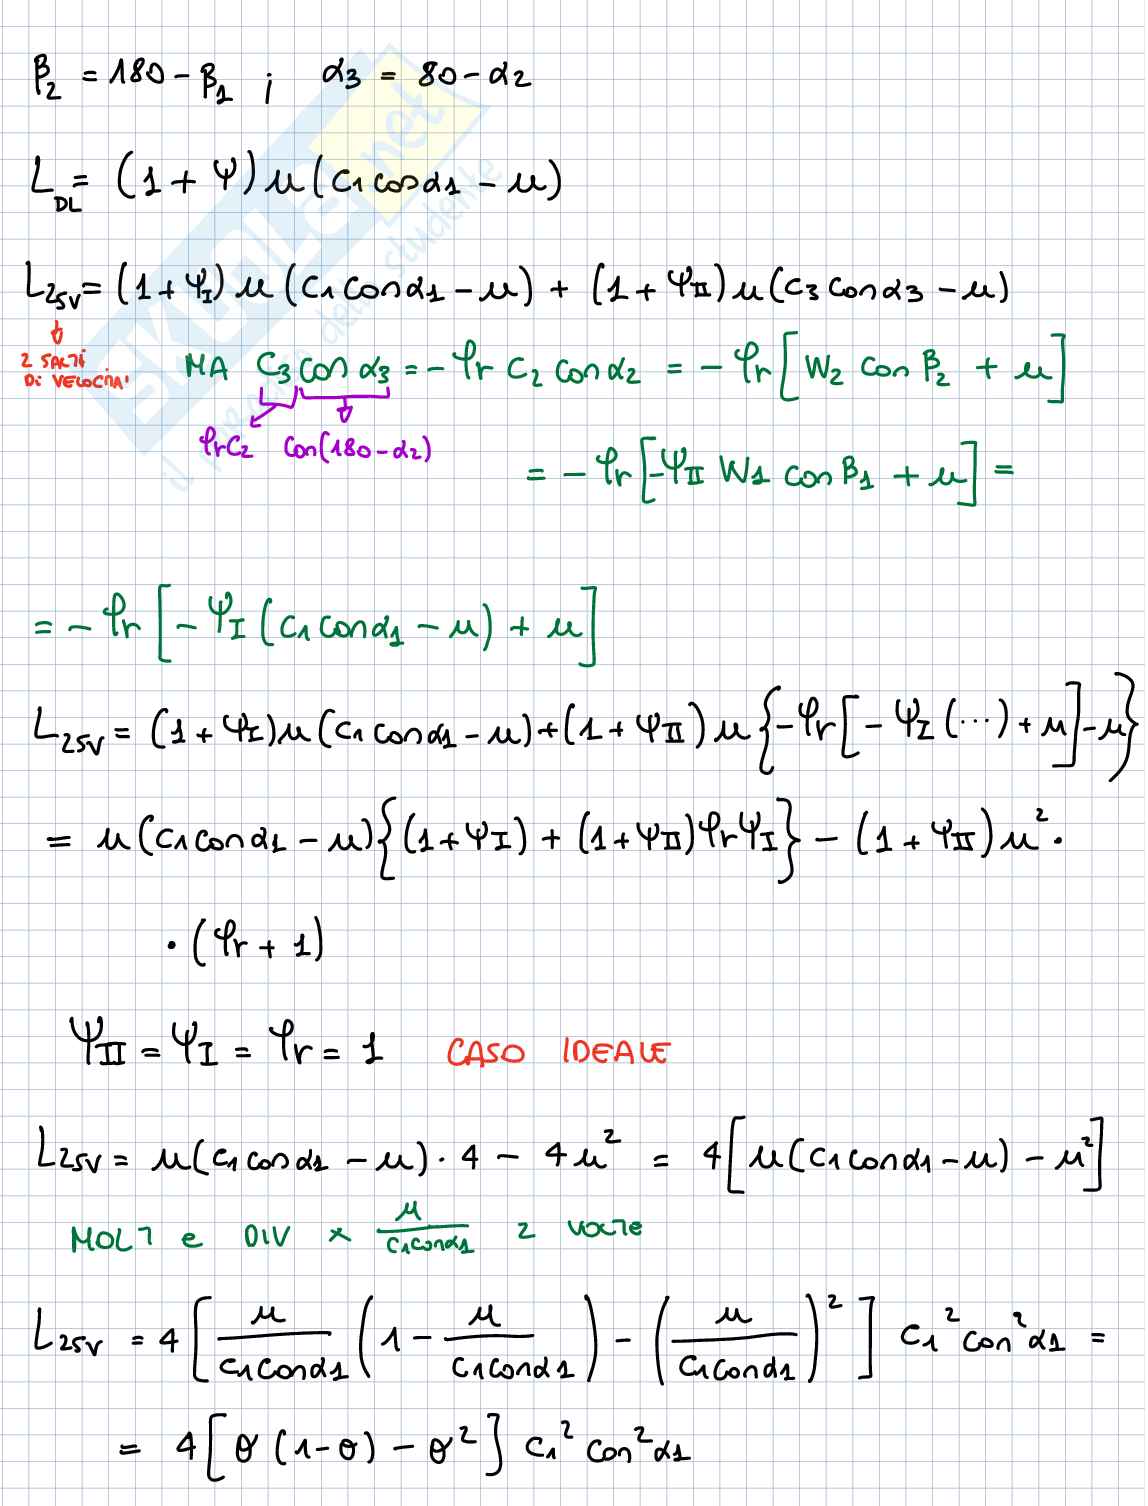 β₂ = 180 - β₁ ; α3 = 80 - α2
L_DL = (1 + Ψ) u (c1 cos α1 - u)
L_2SV = (1 + Ψ_I) u (c1 cos α1 - u) + (1 + Ψ_II) u (c3 cos α3 - u)
2 SALTI
DI VELOCITA'
MA c3 cos α3 = - φr c2 cos α2 = - φr [W2 cos β2 + u]
φr c2 cos(180 - α2)
= - φr [-Ψ_II W1 cos β1 + u] =
= - φr [- Ψ_I (c1 cos α1 - u) + u]
L_2SV = (1 + Ψ_I) u (c1 cos α1 - u) + (1 + Ψ_II) u {-φr [- Ψ_I (...) + u] - u}
= u (c1 cos α1 - u) {(1 + Ψ_I) + (1 + Ψ_II) φr Ψ_I} - (1 + Ψ_II) u² ·
· (φr + 1)
Ψ_II = Ψ_I = φr = 1 CASO IDEALE
L_2SV = u (c1 cos α1 - u) · 4 - 4u² = 4 [u (c1 cos α1 - u) - u²]
MOLT e DIV × u/(c1 cos α1) 2 VOLTE
L_2SV = 4 [u/(c1 cos α1) (1 - u/(c1 cos α1)) - (u/(c1 cos α1))²] c1² cos² α1 =
= 4 [θ (1 - θ) - θ²] c1² cos² α1